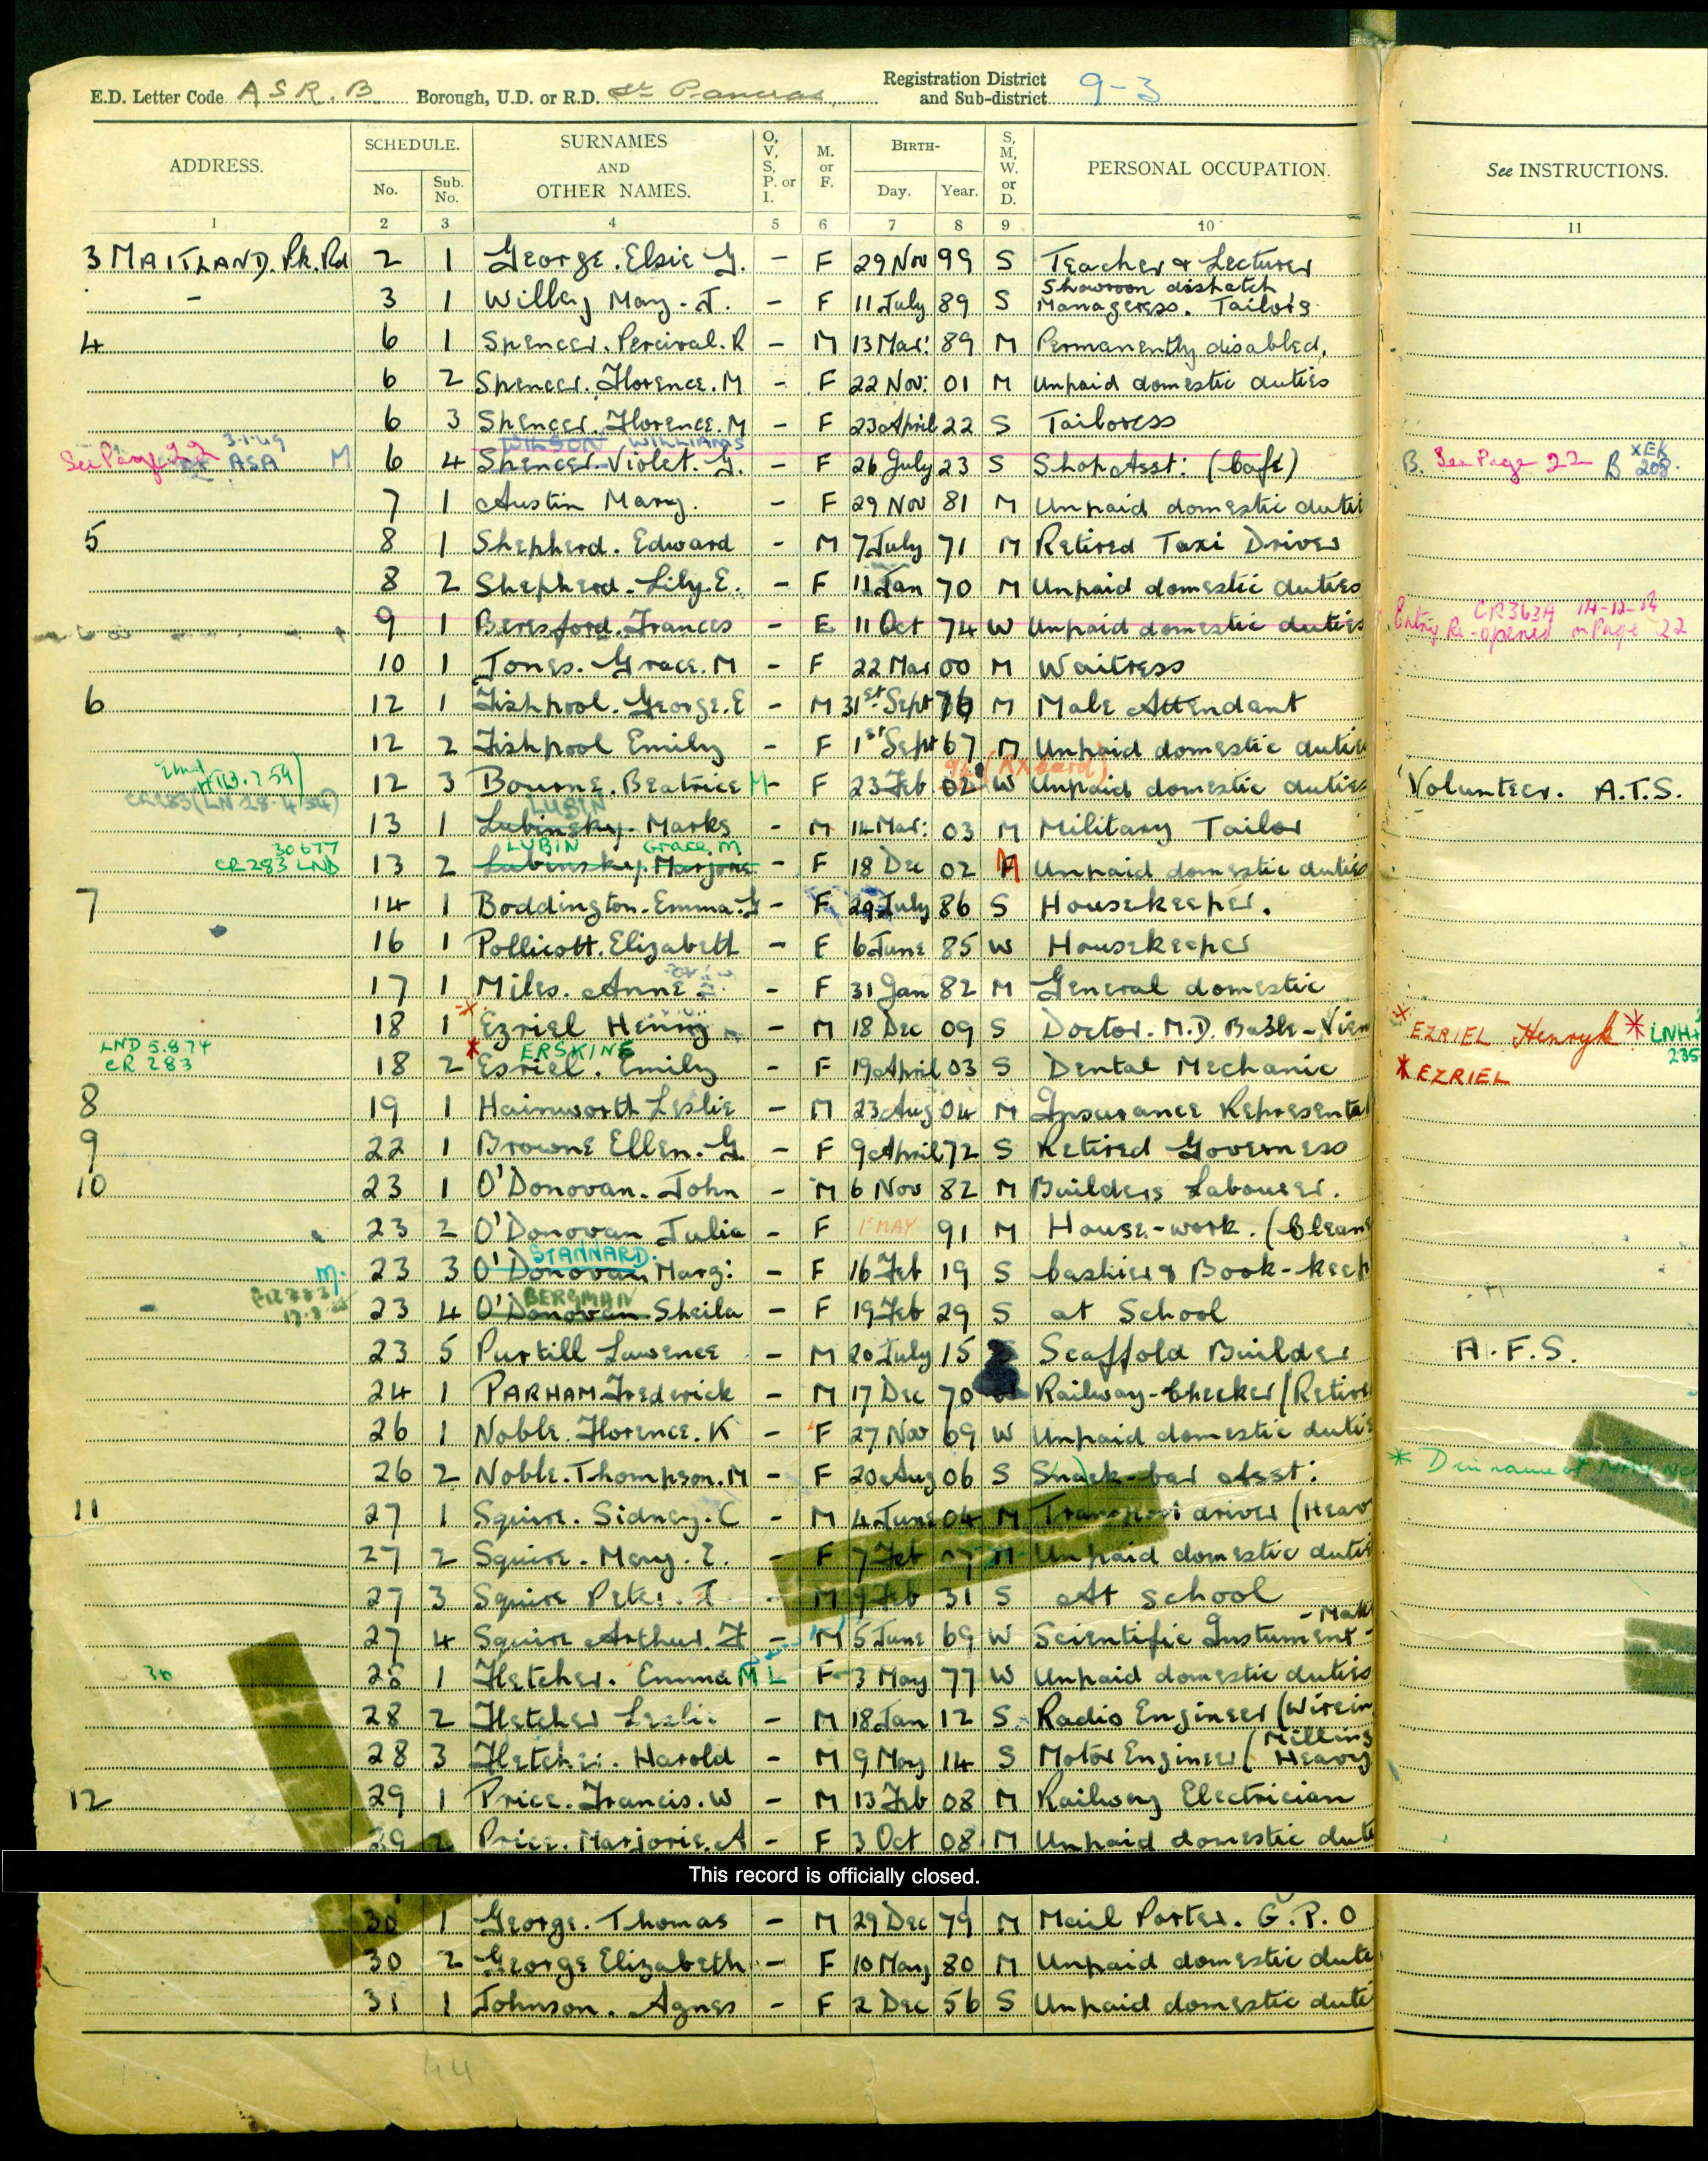 E.D. Letter Code A S R. B Borough, U.D. or R.D. St Pancras Registration District and Sub-district 9-3
ADDRESS. SCHEDULE. No. Sub. No. SURNAMES AND OTHER NAMES. O, V, S, P. or I. M. or F. BIRTH- Day. Year. S, M, W. or D. PERSONAL OCCUPATION. See INSTRUCTIONS.
1 2 3 4 5 6 7 8 9 10 11
3 MAITLAND. Pk. Rd 2 1 George. Elsie G. - F 29 Nov 99 S Teacher & Lecturer
- 3 1 Willey May. J. - F 11 July 89 S Showroon dispatch Manageress. Tailors
4 6 1 Spencer. Percival. R - M 13 Mar: 89 M Permanently disabled.
6 2 Spencer. Florence. M - F 22 Nov: 01 M Unpaid domestic duties
6 3 Spencer. Florence. M - F 23 April 22 S Tailoress
WILSON WILLIAMS
See Page 22 3.1.49 ASA M 6 4 Spencer. Violet. G. - F 26 July 23 S Shop Asst: (Cafe) B. See Page 22 B XEK 208.
7 1 Austin Mary. - F 29 Nov 81 M Unpaid domestic dutie
5 8 1 Shepherd. Edward - M 7 July 71 M Retired Taxi Driver
8 2 Shepherd. Lily. E. - F 11 Jan 70 M Unpaid domestic duties
9 1 Beresford. Frances - F 11 Oct 74 W Unpaid domestic duties CR363A 14-12-
Entry Re-opened on Page 22
10 1 Jones. Grace. M - F 22 Mar 00 M Waitress
6 12 1 Fishpool. George. E - M 31st Sept 76 M Male Attendant
12 2 Fishpool Emily - F 1st Sept 67 M Unpaid domestic dutie
(RX card)
12 3 Bourne. Beatrice M - F 23 Feb 02 W Unpaid domestic duties Volunteer. A.T.S.
LUBIN
13 1 Lubinsky. Marks - M 14 Mar: 03 M Military Tailor
LUBIN Grace. M.
30677 CR 283 LND 13 2 Lubinsky. Marjorie - F 18 Dec 02 M Unpaid domestic duties
7 14 1 Boddington. Emma. F - F 29 July 86 S Housekeeper.
16 1 Pollicott. Elizabeth - F 6 June 85 W Housekeeper
17 1 Miles. Anne. - F 31 Jan 82 M General domestic
18 1 Ezriel Henry - M 18 Dec 09 S Doctor. M.D. Basle-Vien * EZRIEL Henryk * LNH 235
ERSKINE
LND 5.8.74 CR 283 18 2 Esriel. Emily - F 19 April 03 S Dental Mechanic * EZRIEL
8 19 1 Hainworth Leslie - M 23 Aug 04 M Insurance Representat
9 22 1 Browne Ellen. G. - F 9 April 72 S Retired Governess
10 23 1 O'Donovan. John - M 6 Nov 82 M Builders Labourer.
23 2 O'Donovan Julia - F 1st MAY 91 M House-work. (Clean
STANNARD.
m. 23 3 O'Donovan Marg: - F 16 Feb 19 S Cashier & Book-keep
BERGMAN
23 4 O'Donovan Sheila - F 19 Feb 29 S at School
23 5 Purtill Lawrence - M 20 July 15 Scaffold Builder A.F.S.
24 1 PARHAM Frederick - M 17 Dec 70 Railway-Checker (Retire
26 1 Noble. Florence. K - F 27 Nov 69 W Unpaid domestic dutie
26 2 Noble. Thompson. M - F 20 Aug 06 S Snack-bar Asst: *
11 27 1 Squire. Sidney. C - M 4 June 04 M Transport driver (Heav
27 2 Squire. Mary. E. - F 7 Feb 07 M Unpaid domestic dutie
27 3 Squire Peter. F - M 9 Feb 31 S At School
27 4 Squire Arthur. F - M 5 June 69 W Scientific Instument - Mak
28 1 Fletcher. Emma M L F 3 May 77 W Unpaid domestic duties
28 2 Fletcher Leslie - M 18 Jan 12 S. Radio Engineer (Wirein
28 3 Fletcher. Harold - M 9 May 14 S Motor Engineer (Milling Heavy
12 29 1 Price. Francis. W - M 13 Feb 08 M Railway Electrician
29 2 Price. Marjorie. A - F 3 Oct 08 M Unpaid domestic dute
This record is officially closed.
30 1 George. Thomas - M 29 Dec 79 M Mail Porter. G.P.O
30 2 George Elizabeth - F 10 May 80 M Unpaid domestic dute
31 1 Johnson. Agnes - F 2 Dec 56 S Unpaid domestic duti
44